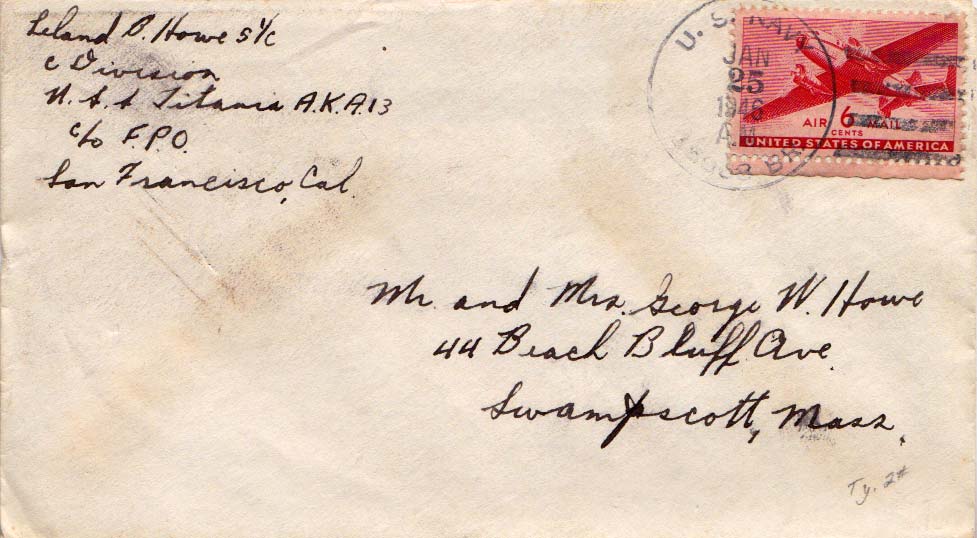 Leland B. Howe S 1/c
C Division
U.S.S. Titania A.K.A. 13
c/o F.P.O.
San Francisco, Cal.
U. S. NAVY
JAN
25
1946
A.M.
BR.
AIR 6 MAIL
CENTS
UNITED STATES OF AMERICA
Mr. and Mrs. George W. Howe
44 Beach Bluff Ave.
Swampscott, Mass.
Ty. 2#